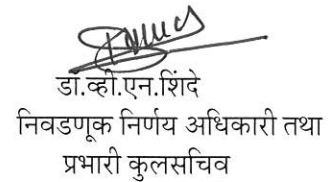 डॉ.व्ही.एन.शिंदे
निवडणूक निर्णय अधिकारी तथा
प्रभारी कुलसचिव